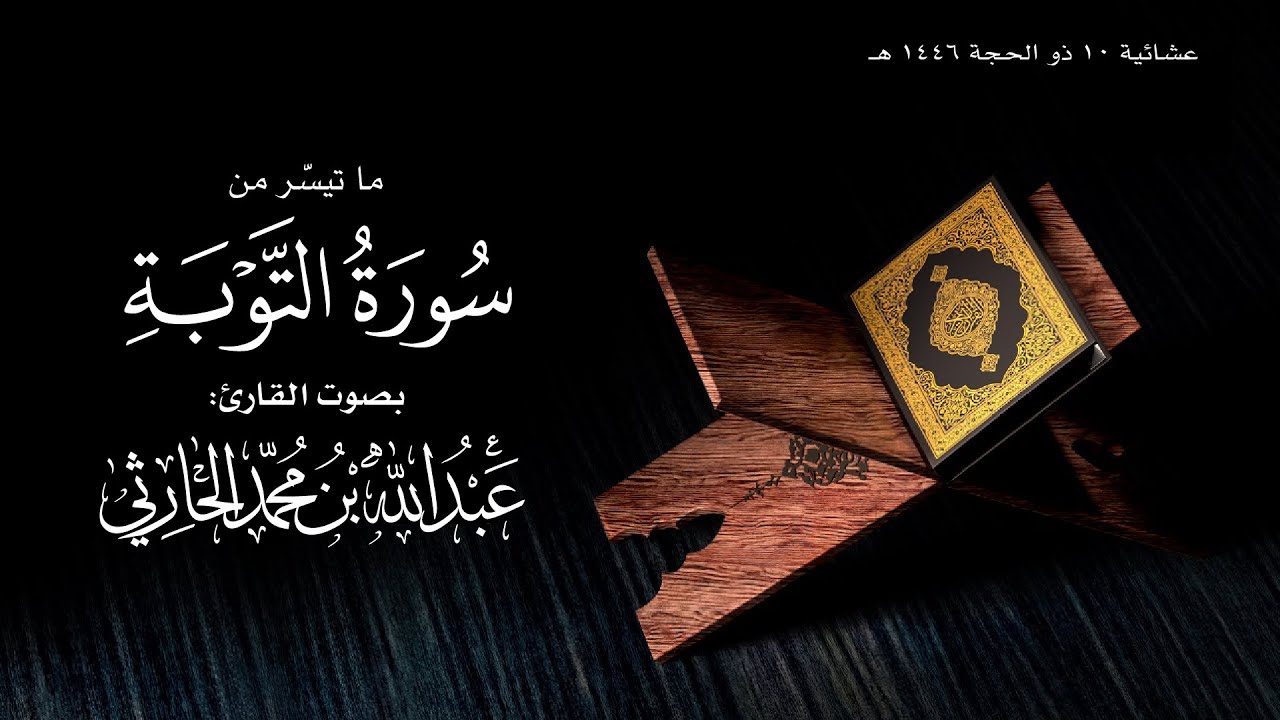 عشائية ١٠ ذو الحجة ١٤٤٦ هـ
ما تيسّر من
سُورَةُ التَّوْبَةِ
بصوت القارئ:
عَبْدُ اللّٰه بْنُ مُحَمَّد الْحَارِثِي